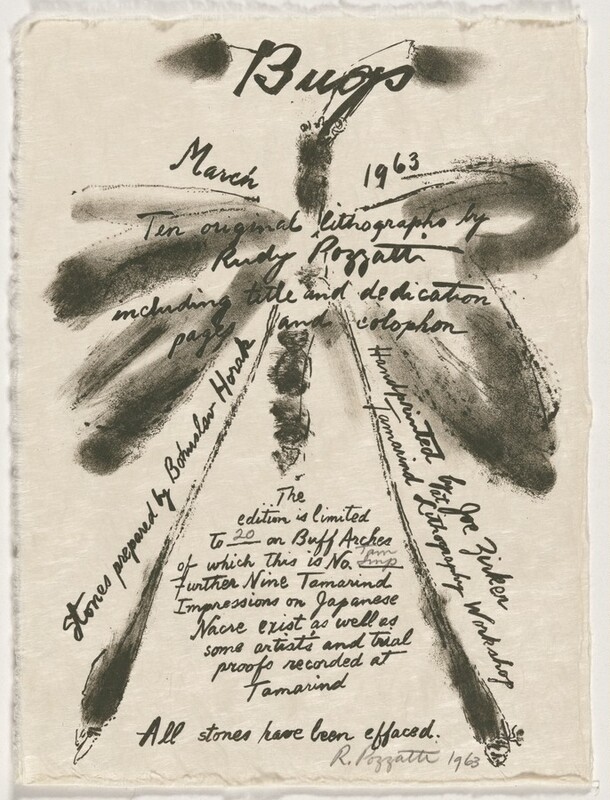 Bugs
March 1963
Ten original lithographs by
Rudy Pozzatti
including title and dedication
pages and colophon
Stones prepared by Bohuslav Horak
Handprinted by Joe Zirker
at
Tamarind Lithography Workshop
The
edition is limited
to 20 on Buff Arches
of which this is No. Tam Imp
Further Nine Tamarind
Impressions on Japanese
Nacre exist as well as
some artist's and trial
proofs recorded at
Tamarind
All stones have been effaced.
R. Pozzatti 1963